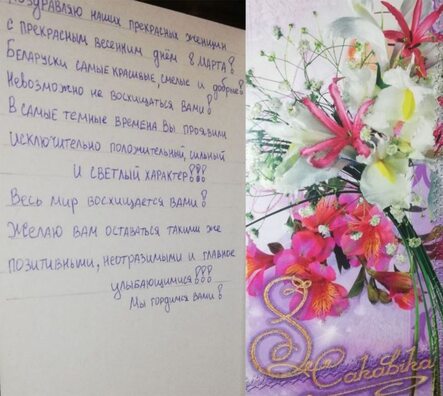 Поздравляю наших прекрасных женщин
с прекрасным весенним днём 8 марта!
Беларуски самые красивые, смелые и добрые!
Невозможно не восхищаться вами!
В самые темные времена вы проявили
исключительно положительный, сильный
и светлый характер!!!
Весь мир восхищается вами!
Желаю вам оставаться такими же
позитивными, неотразимыми и главное
улыбающимися!!!
Мы гордимся вами!
8
Cakaвika